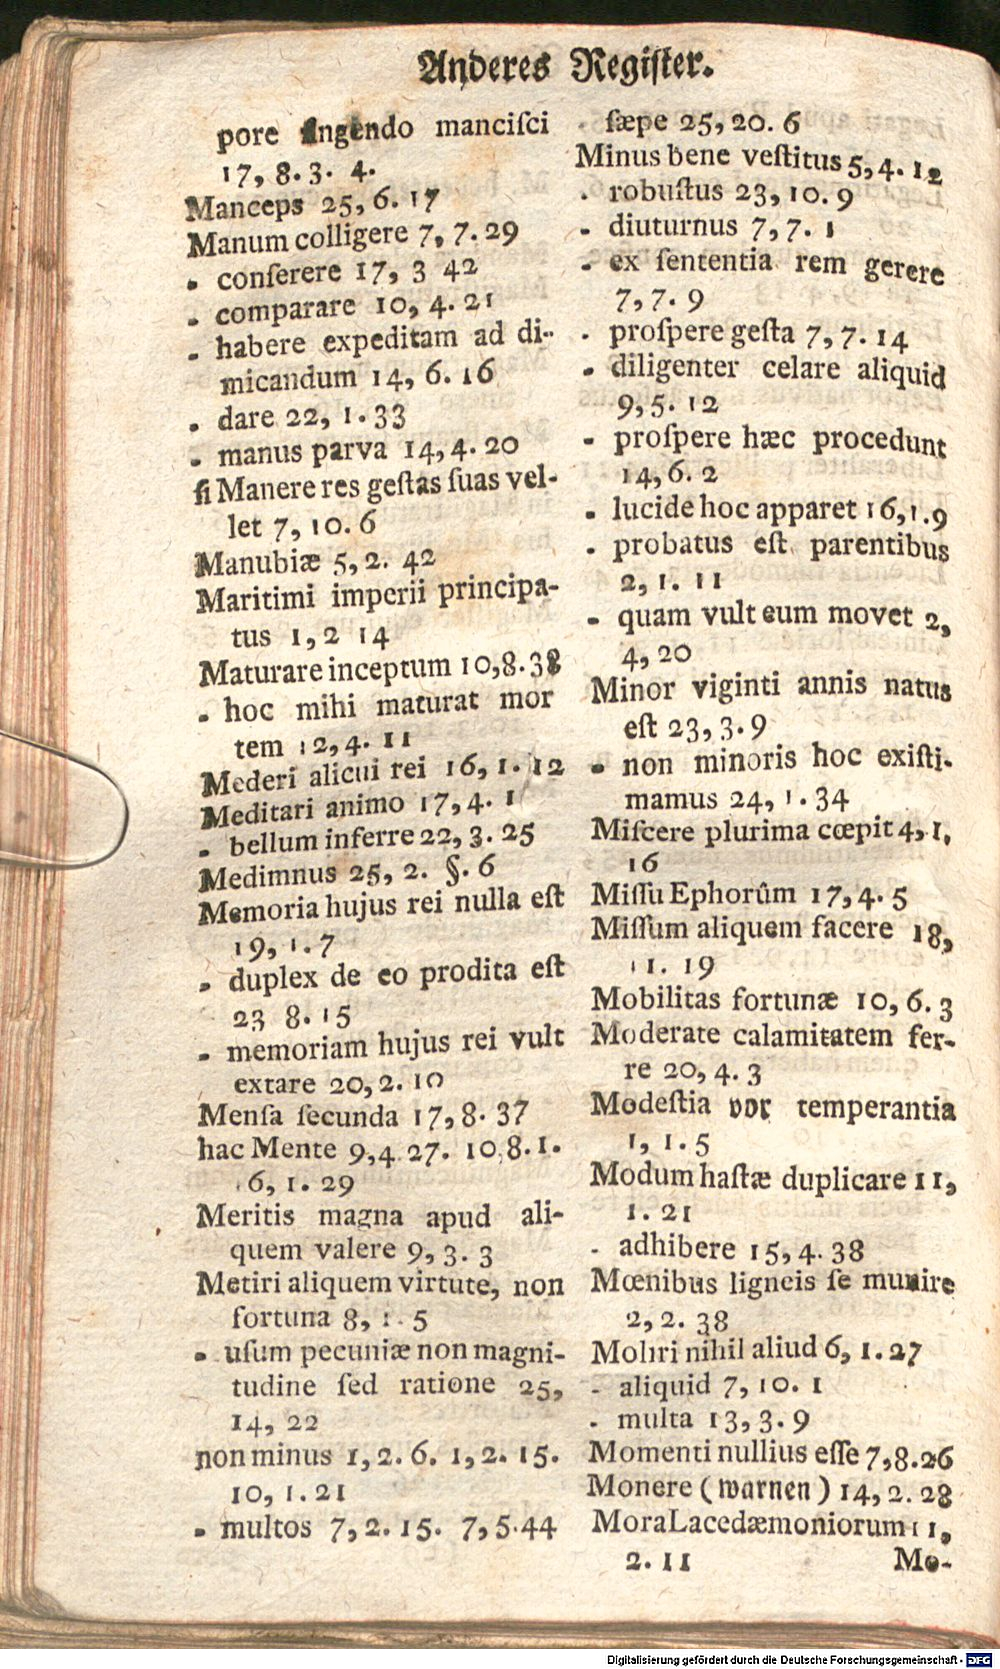 Anderes Regiſter.
pore ſingendo manciſci
17, 8. 3. 4.
Manceps 25, 6. 17
Manum colligere 7, 7. 29
- conſerere 17, 3 42
- comparare 10, 4. 21
- habere expeditam ad di-
micandum 14, 6. 16
- dare 22, 1. 33
- manus parva 14, 4. 20
ſi Manere res geſtas ſuas vel-
let 7, 10. 6
Manubiæ 5, 2. 42
Maritimi imperii principa-
tus 1, 2 14
Maturare inceptum 10, 8. 38
- hoc mihi maturat mor
tem 12, 4. 11
Mederi alicui rei 16, 1. 12
Meditari animo 17, 4. 1
- bellum inferre 22, 3. 25
Medimnus 25, 2. §. 6
Memoria hujus rei nulla eſt
19, 1. 7
- duplex de eo prodita eſt
23 8. 15
- memoriam hujus rei vult
extare 20, 2. 10
Menſa ſecunda 17, 8. 37
hac Mente 9, 4 27. 10, 8. 1.
6, 1. 29
Meritis magna apud ali-
quem valere 9, 3. 3
Metiri aliquem virtute, non
fortuna 8, 1. 5
- uſum pecuniæ non magni-
tudine ſed ratione 25,
14, 22
non minus 1, 2. 6. 1, 2. 15.
10, 1. 21
- multos 7, 2. 15. 7, 5. 44
ſæpe 25, 20. 6
Minus bene veſtitus 5, 4. 12
- robuſtus 23, 10. 9
- diuturnus 7, 7. 1
- ex ſententia rem gerere
7, 7. 9
- proſpere geſta 7, 7. 14
- diligenter celare aliquid
9, 5. 12
- proſpere hæc procedunt
14, 6. 2
- lucide hoc apparet 16, 1. 9
- probatus eſt parentibus
2, 1. 11
- quam vult eum movet 2,
4, 20
Minor viginti annis natus
eſt 23, 3. 9
- non minoris hoc exiſti-
mamus 24, 1. 34
Miſcere plurima cœpit 4, 1,
16
Miſſu Ephorûm 17, 4. 5
Miſſum aliquem facere 18,
11. 19
Mobilitas fortunæ 10, 6. 3
Moderate calamitatem fer-
re 20, 4. 3
Modeſtia vor temperantia
1, 1. 5
Modum haſtæ duplicare 11,
1. 21
- adhibere 15, 4. 38
Mœnibus ligneis ſe munire
2, 2. 38
Moliri nihil aliud 6, 1. 27
- aliquid 7, 10. 1
- multa 13, 3. 9
Momenti nullius eſſe 7, 8. 26
Monere (warnen) 14, 2. 28
Mora Lacedæmoniorum 11,
2. 11
Mo-
Digitalisierung gefördert durch die Deutsche Forschungsgemeinschaft - DFG